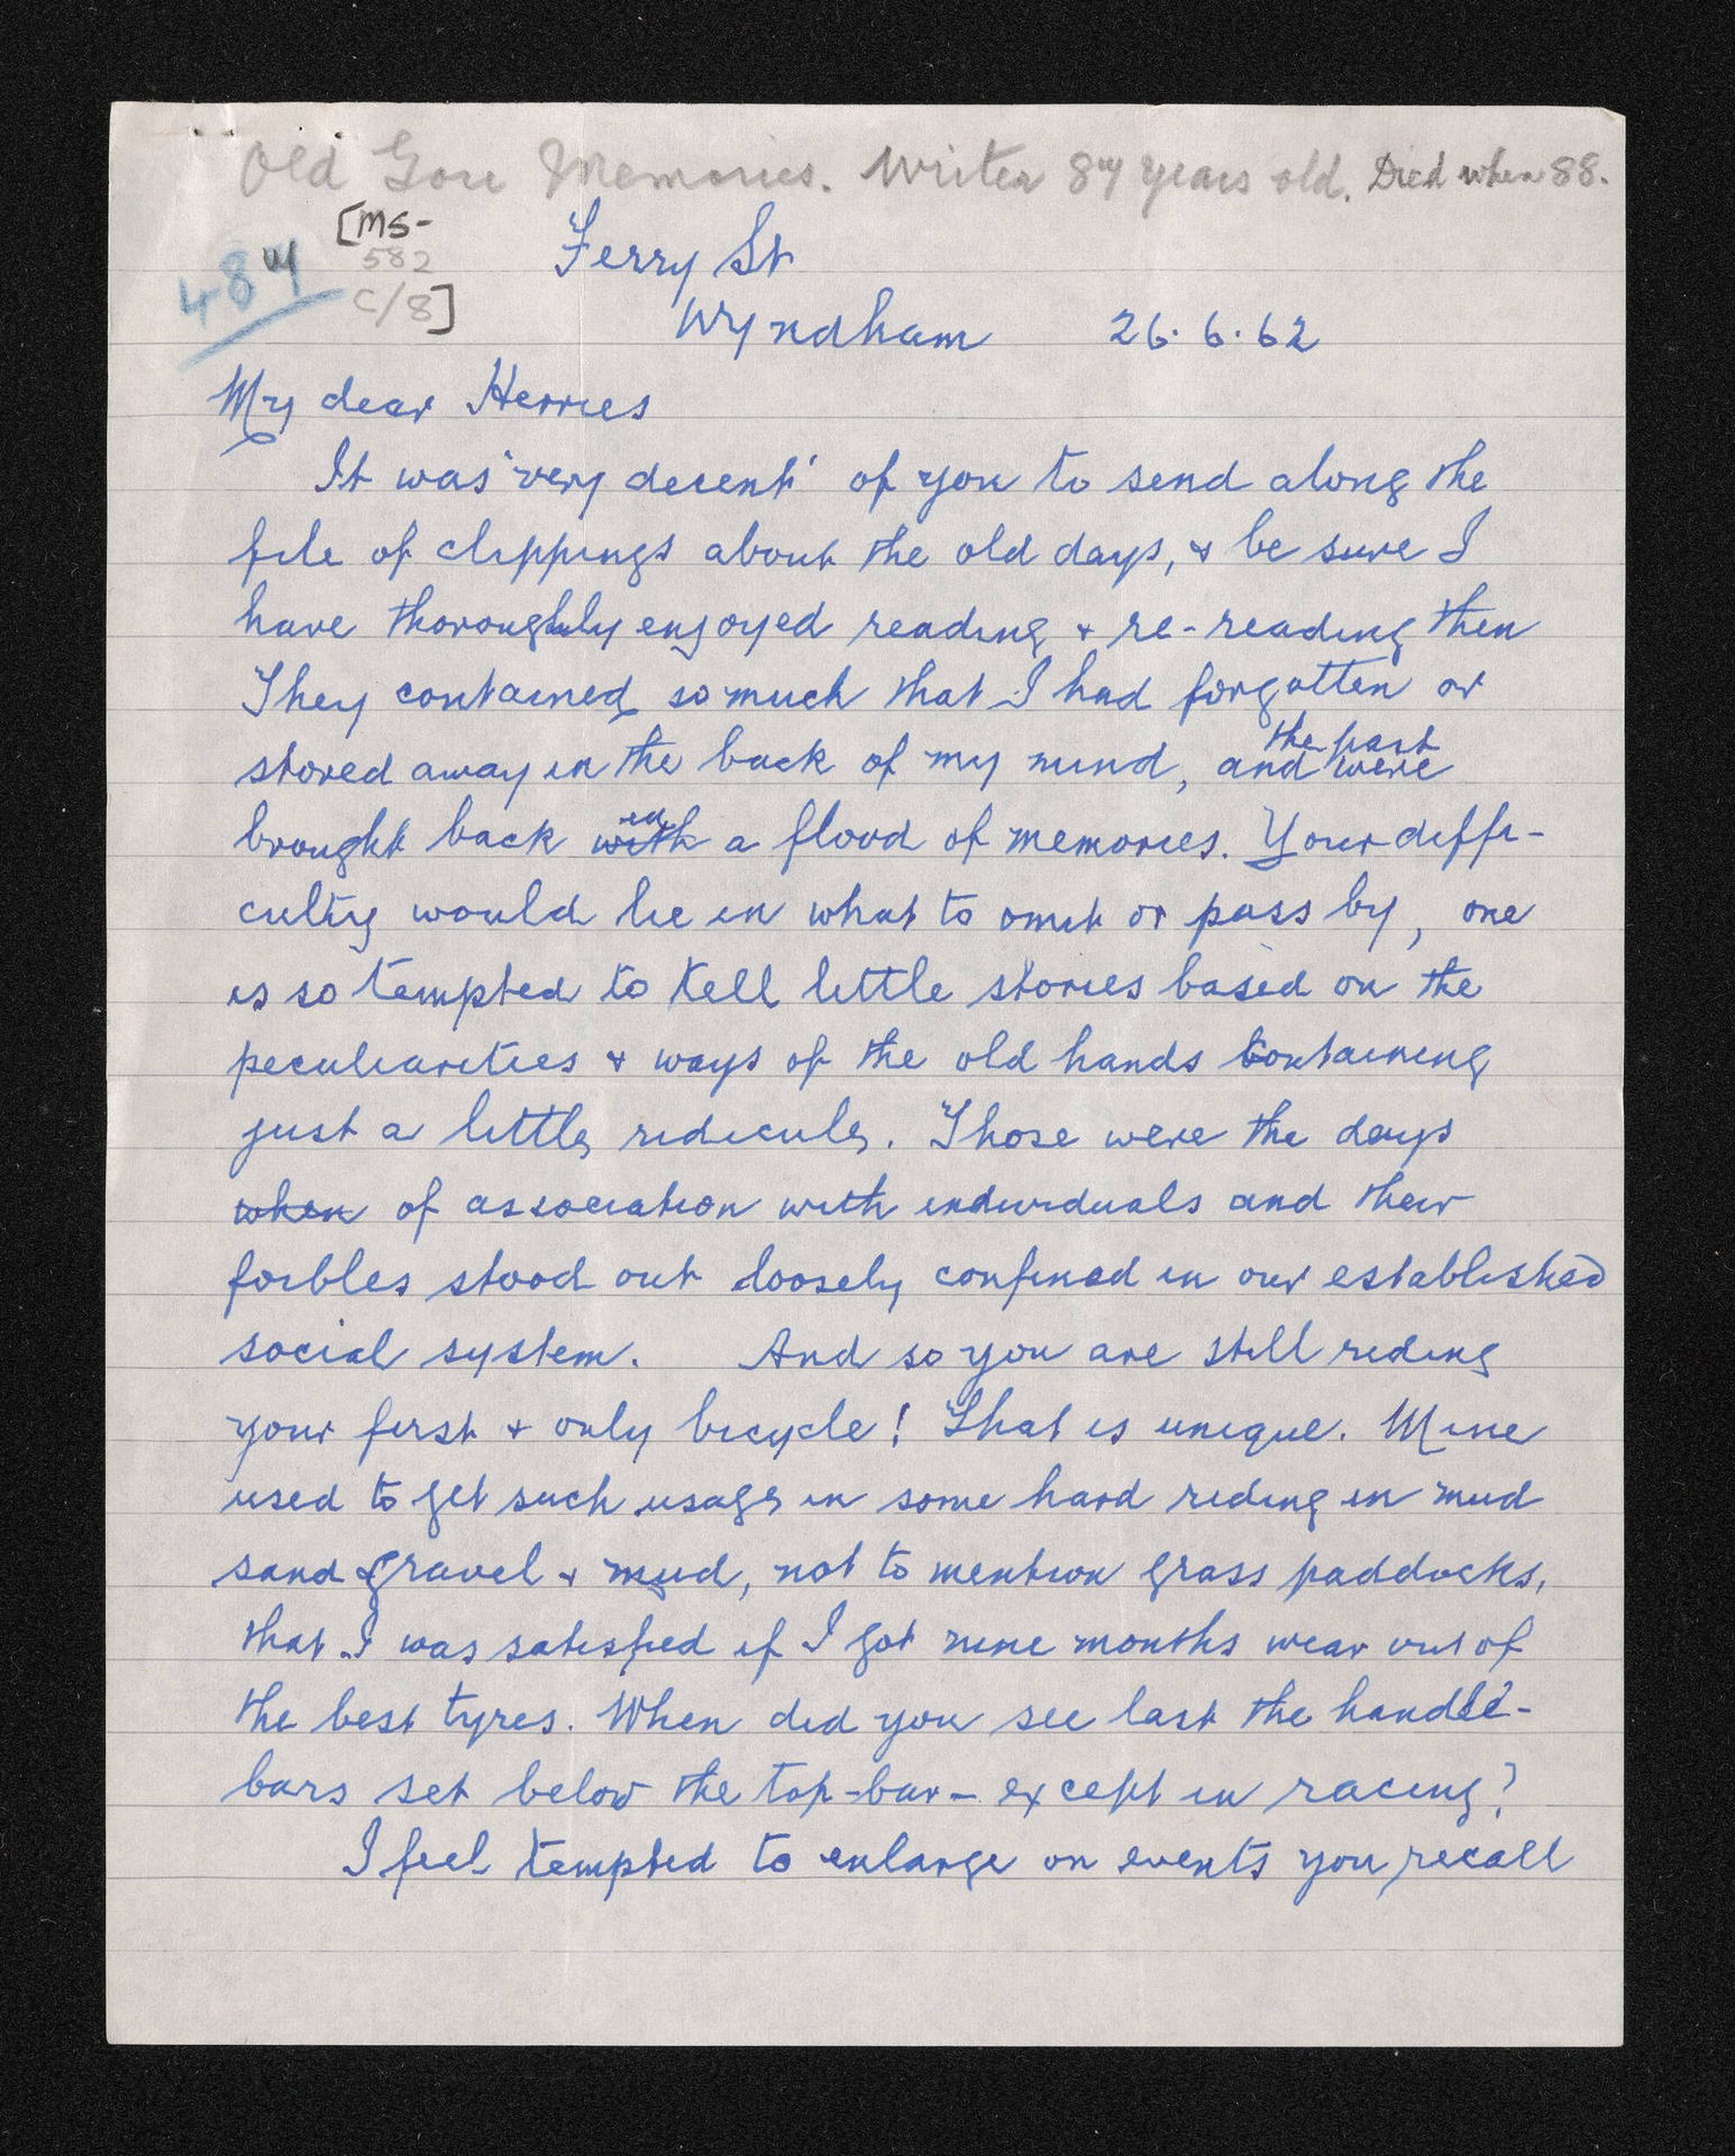 Old Gore Memories. Writer 87 years old. Died when 88.
[MS-
582
C/8]
487
Ferry St
Wyndham 26.6.62
My dear Herries
It was 'very decent' of you to send along the
file of clippings about the old days, & be sure I
have thoroughly enjoyed reading & re-reading then
They contained so much that I had forgotten or
the past
stored away in the back of my mind, and were
in
brought back with a flood of memories. Your diffi-
culty would lie in what to omit or pass by, one
is so tempted to tell little stories based on the
peculiarities & ways of the old hands containing
just a little ridicule. Those were the days
when of association with individuals and their
foibles stood out loosely confined in our established
social system. And so you are still riding
your first & only bicycle! That is unique. Mine
used to get such usage in some hard riding in mud
sand & gravel & mud, not to mention grass paddocks,
that I was satisfied if I got nine months wear out of
the best tyres. When did you see last the handle-
bars set below the top-bar - except in racing?
I feel tempted to enlarge on events you recall